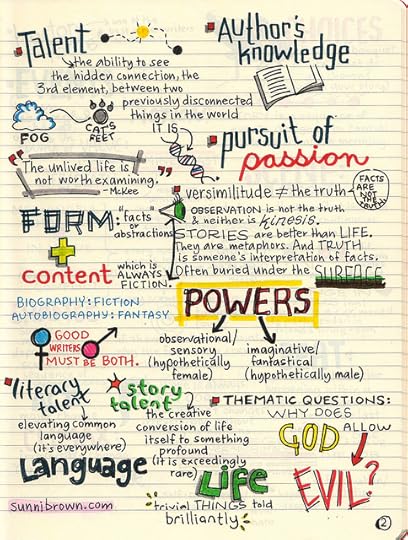 Talent
the ability to see
the hidden connection, the
3rd element, between two
previously disconnected
things in the world
FOG
CAT'S
FEET
IT IS
Author's
knowledge
pursuit of
passion
"The unlived life is
not worth examining."
- McKee
versimilitude ≠ the truth
FACTS
ARE
NOT
THE
TRUTH.
OBSERVATION is not the truth
& neither is kinesis.
STORIES are better than LIFE.
They are metaphors. And TRUTH
is someone's interpretation of facts.
Often buried under the SURFACE
FORM: "facts"
or
abstractions
+
content which is
ALWAYS
FICTION.
BIOGRAPHY: FICTION
AUTOBIOGRAPHY: FANTASY
GOOD
WRITERS
MUST BE BOTH.
POWERS
observational/
sensory
(hypothetically
female)
imaginative/
fantastical
(hypothetically male)
literary
talent
elevating common
language
(it's everywhere)
Language
story
talent
the creative
conversion of life
itself to something
profound
(it is exceedingly
rare)
Life
trivial THINGS told
brilliantly
THEMATIC QUESTIONS:
WHY DOES
GOD ALLOW
EVIL?
sunnibrown.com
2